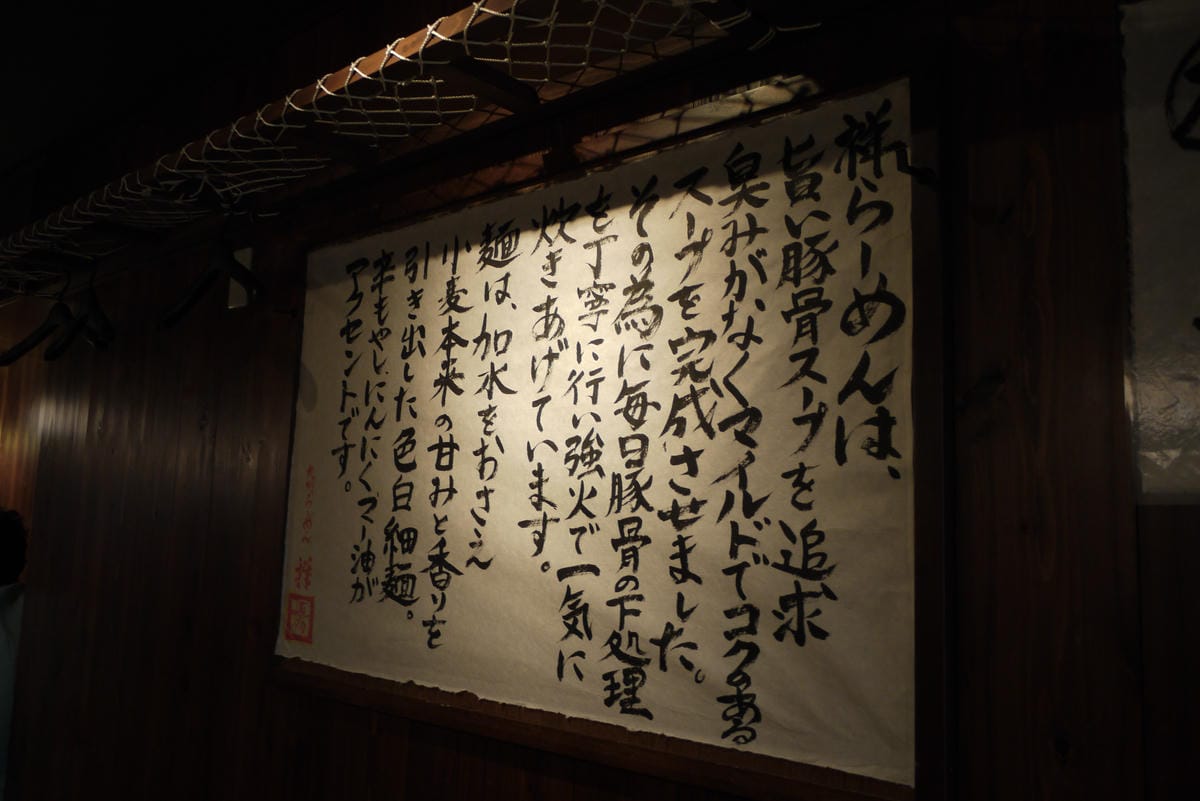 祥らーめんは、
旨い豚骨スープを追求
臭みがなくマイルドでコクのある
スープを完成させました。
その為に毎日豚骨の下処理
を丁寧に行い強火で一気に
炊きあげています。
麺は、加水をおさえ
小麦本来の甘みと香りを
引き出した色白細麺。
辛もやし、にんにくマー油が
アクセントです。